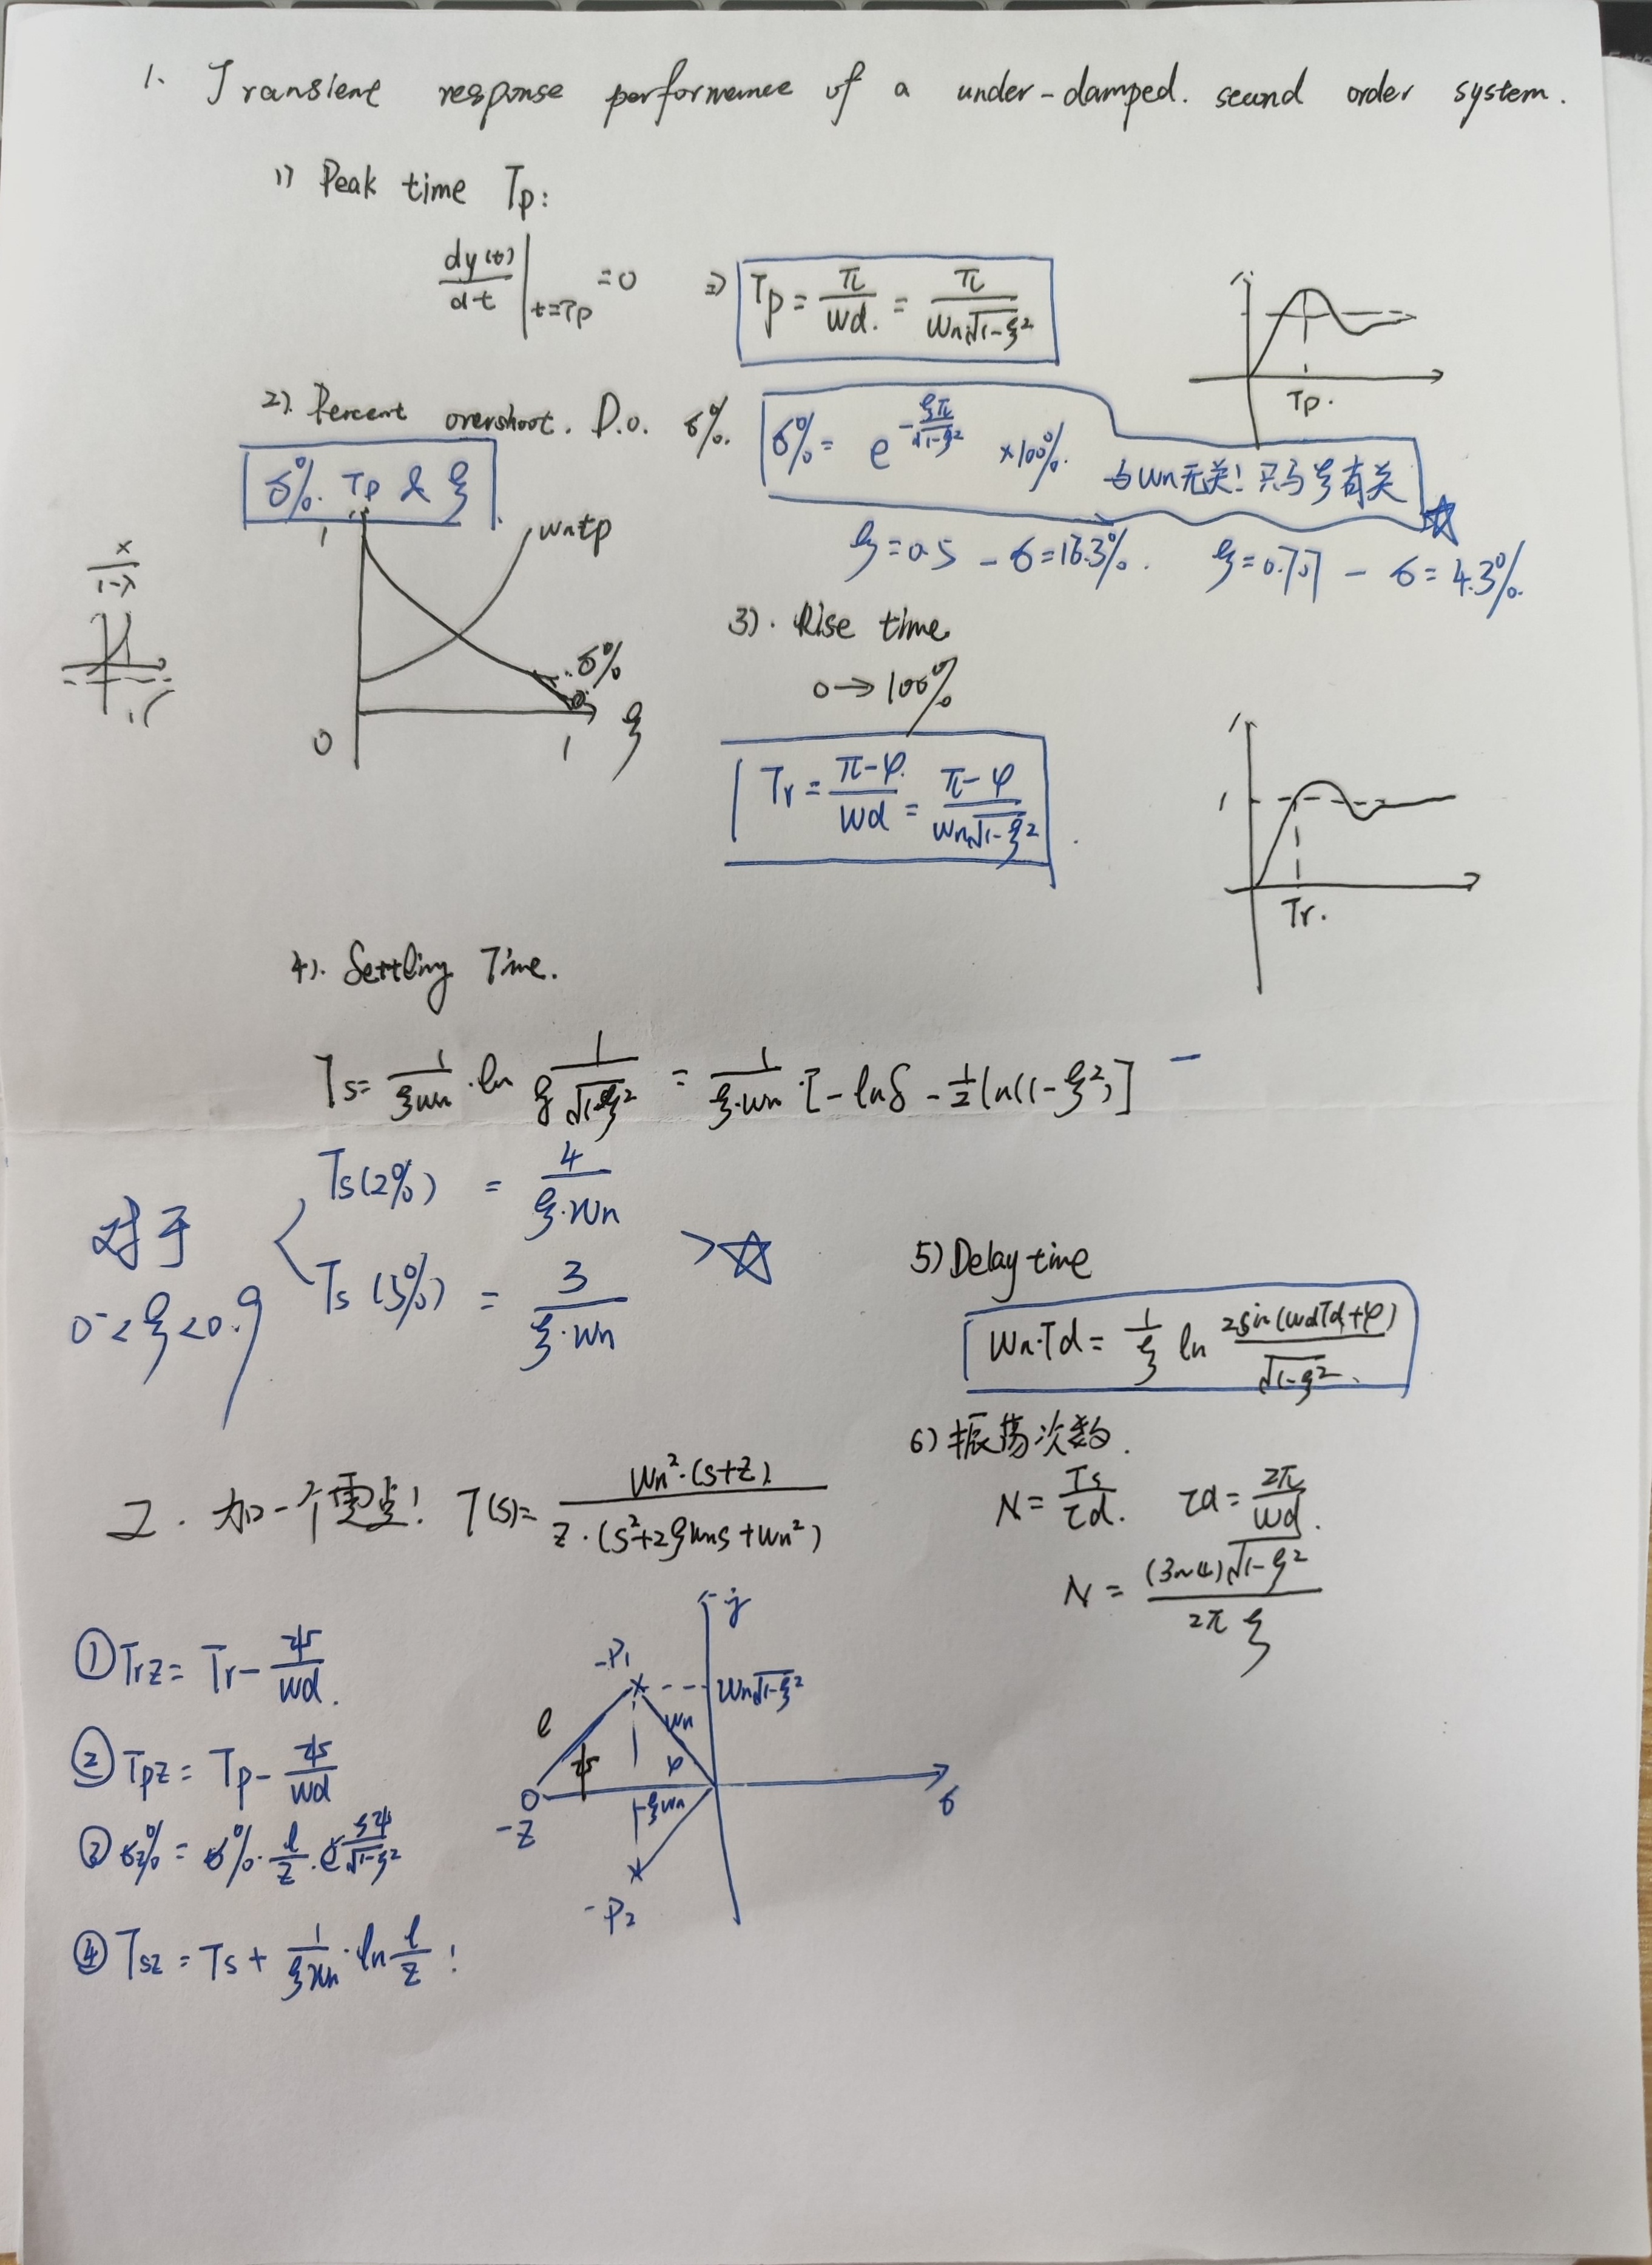 1. Transient response performance of a under-damped. second order system.
1) Peak time Tp:
dy(t)/dt |t=Tp = 0 ⇒ Tp = π/wd. = π/(wn√(1-ξ²))
Tp.
2). Percent overshoot. P.o. σ%. σ% = e^(-ξπ/√(1-ξ²)) ×100%. 与wn无关! 只与ξ有关 ☆
σ%. Tp & ξ
ξ=0.5 - σ=16.3%. ξ=0.707 - σ=4.3%.
x/(1-x)
1
wntp
σ%
0
1
ξ
3). Rise time
0→100%
Tr = (π-φ)/wd = (π-φ)/(wn√(1-ξ²))
1
Tr.
4). Settling Time.
Ts = 1/(ξwn) · ln 1/(δ√(1-ξ²)) = 1/(ξ·wn) · [-lnδ - ½ln(1-ξ²)]
对于
0<ξ<0.9
Ts(2%) = 4/(ξ·wn)
Ts(5%) = 3/(ξ·wn)
>☆
5) Delay time
wn·Td = 1/ξ ln 2sin(wdTd+φ)/√(1-ξ²).
6) 振荡次数.
N = Ts/τd. τd = 2π/wd.
N = (3~4)√(1-ξ²)/(2πξ)
2. 加一个零点! T(s) = wn²·(s+z)/(z·(s²+2ξwns+wn²))
① Trz = Tr - ψ/wd.
② Tpz = Tp - ψ/wd
③ σz% = σ%·l/z·e^(ξψ/√(1-ξ²))
④ Tsz = Ts + 1/(ξwn)·ln l/z !
j
-P1
wn√(1-ξ²)
l
wn
ψ
φ
-ξwn
-z
σ
-P2